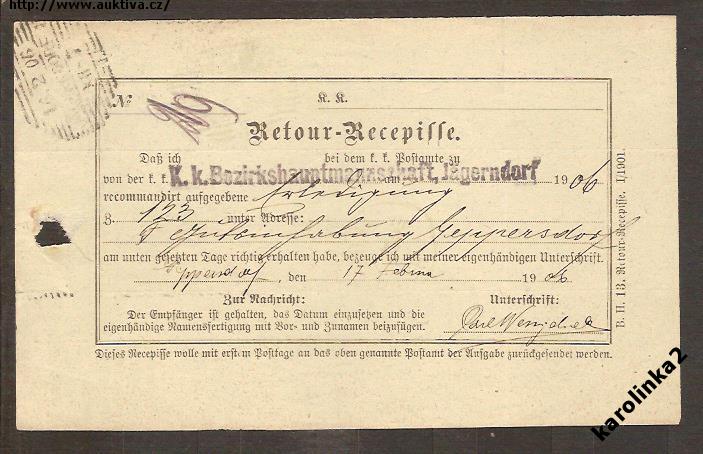 http://www.auktiva.cz/
No 119 K. K.
Retour-Recepisse.
Daß ich bei dem k. k. Postamte zu
von der k. k. K. k. Bezirkshauptmannschaft, Jägerndorf am 1906
recommandirt aufgegebene Erledigung
Z. 123 unter Adresse:
Geppersdorf
am unten gesetzten Tage richtig erhalten habe, bezeuge ich mit meiner eigenhändigen Unterschrift.
Geppersdorf, den 17 1906
Zur Nachricht:
Der Empfänger ist gehalten, das Datum einzusetzen und die
eigenhändige Namensfertigung mit Vor- und Zunamen beizufügen.
Unterschrift:
Carl
Dieses Recepisse wolle mit erstem Posttage an das oben genannte Postamt der Aufgabe zurückgesendet werden.
B. H. 13. Retour-Recepisse. 1/1901.
karolinka2